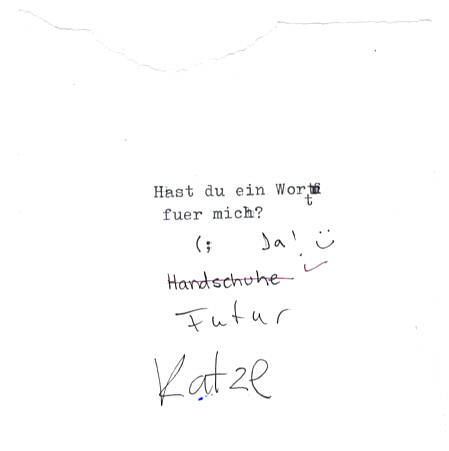 Hast du ein Wort
fuer mich?
(; Ja! :)
Handschuhe
Futur
Katze